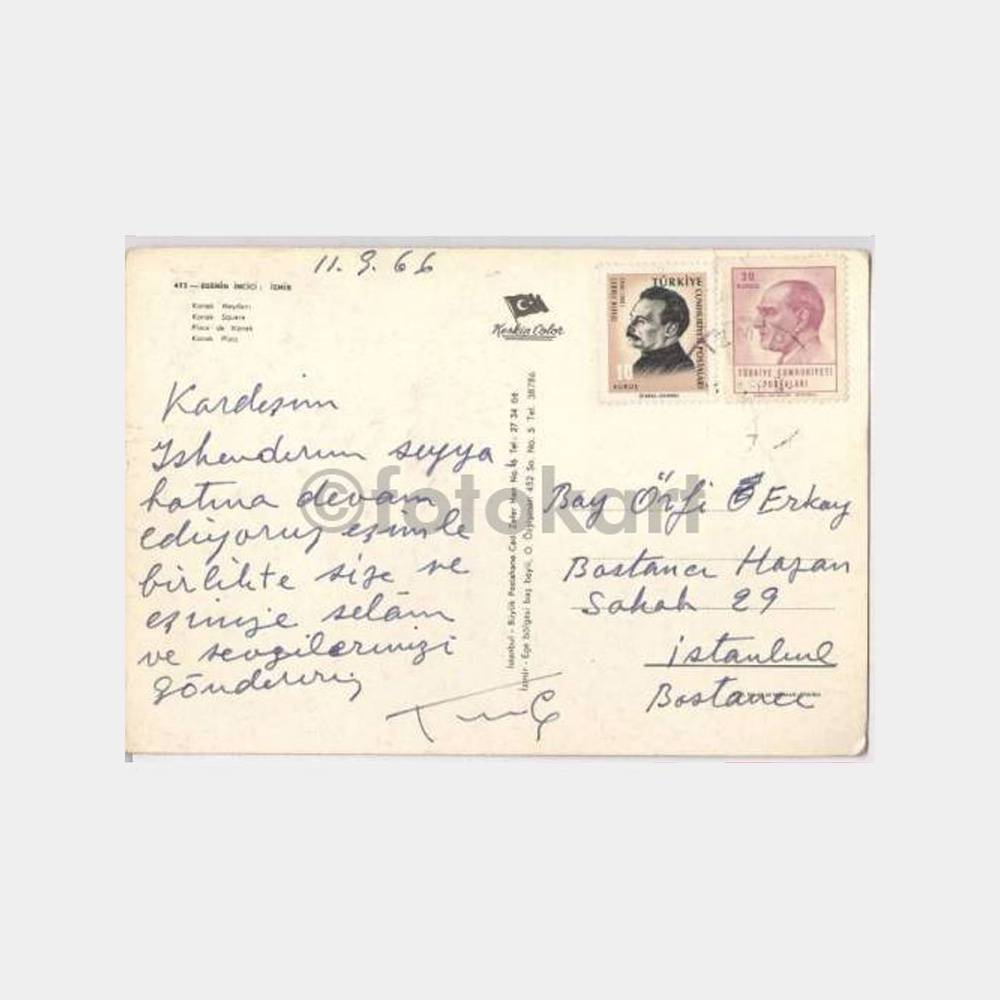 11.9.66
412 — EGENİN İNCİCİ: İZMİR
Konak Meydanı
Konak Square
Place de Konak
Konak Platz
Keskin Color
TÜRKİYE
CUMHURİYETİ POSTALARI
10
KURUŞ
30
KURUŞ
TÜRKİYE CUMHURİYETİ
POSTALARI
Kardeşim
Iskenderun seyya
hatına devam
ediyoruz eşimle
birlikte size ve
eşinize selâm
ve sevgilerimizi
göndeririz
Tunç
İstanbul - Büyük Postahane Cad. Zafer Han No. 16 Tel: 27 34 66
İzmir - Ege bölgesi baş bayii, O. Özyaman 452 So. No. 5 Tel. 38786
Bay Örfi Erkay
Bostancı Hazan
Sokak 29
İstanbul
Bostancı
©fotokart